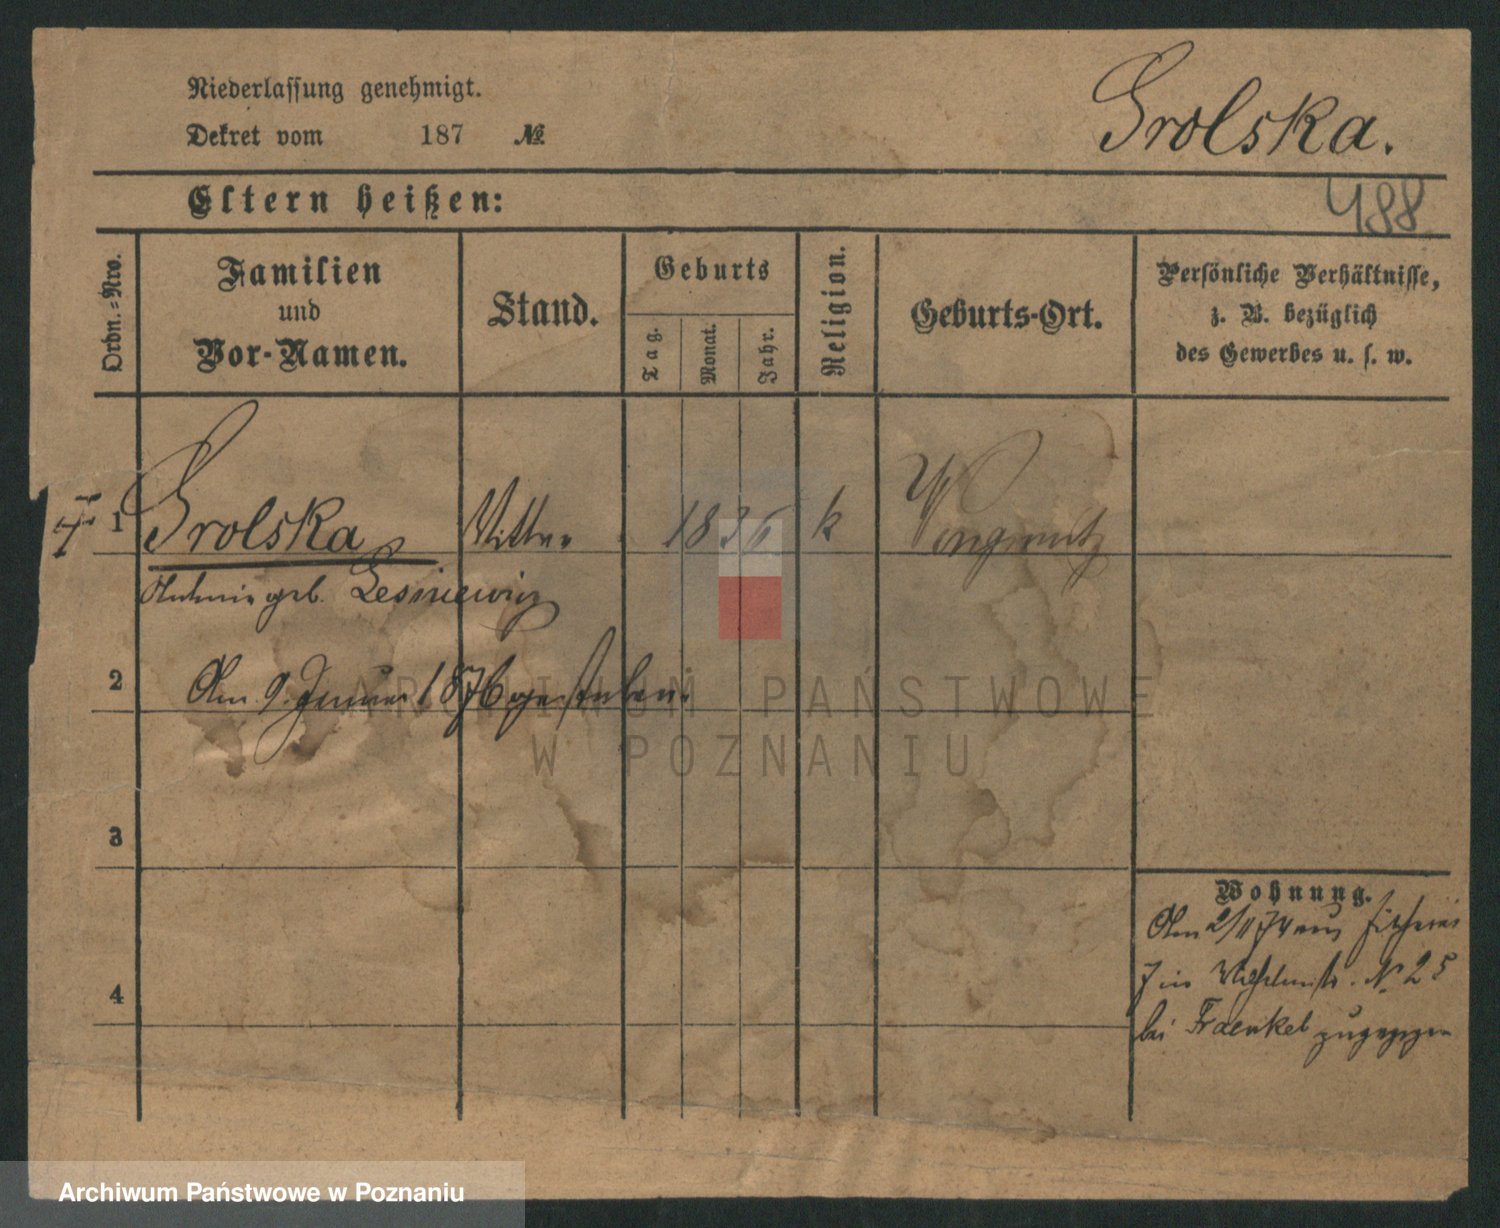 Niederlassung genehmigt.
Dekret vom 187 №
Grolska.
Eltern heißen:
488
Ordn.=Nro.
Familien
und
Vor-Namen.
Stand.
Geburts
Tag.
Monat.
Jahr.
Religion.
Geburts-Ort.
Persönliche Verhältnisse,
z. B. bezüglich
des Gewerbes u. s. w.
1 Grolska Wittwe 1836 k Wongrowitz
Antonie geb. Lesniewicz
2 Am 9. Januar 1876 gestorben.
3
Wohnung.
Am 2/11 74 aus
Wilhelmstr. № 25
4
bei Fraenkel zugezogen
ARCHIWUM PAŃSTWOWE
W POZNANIU
Archiwum Państwowe w Poznaniu